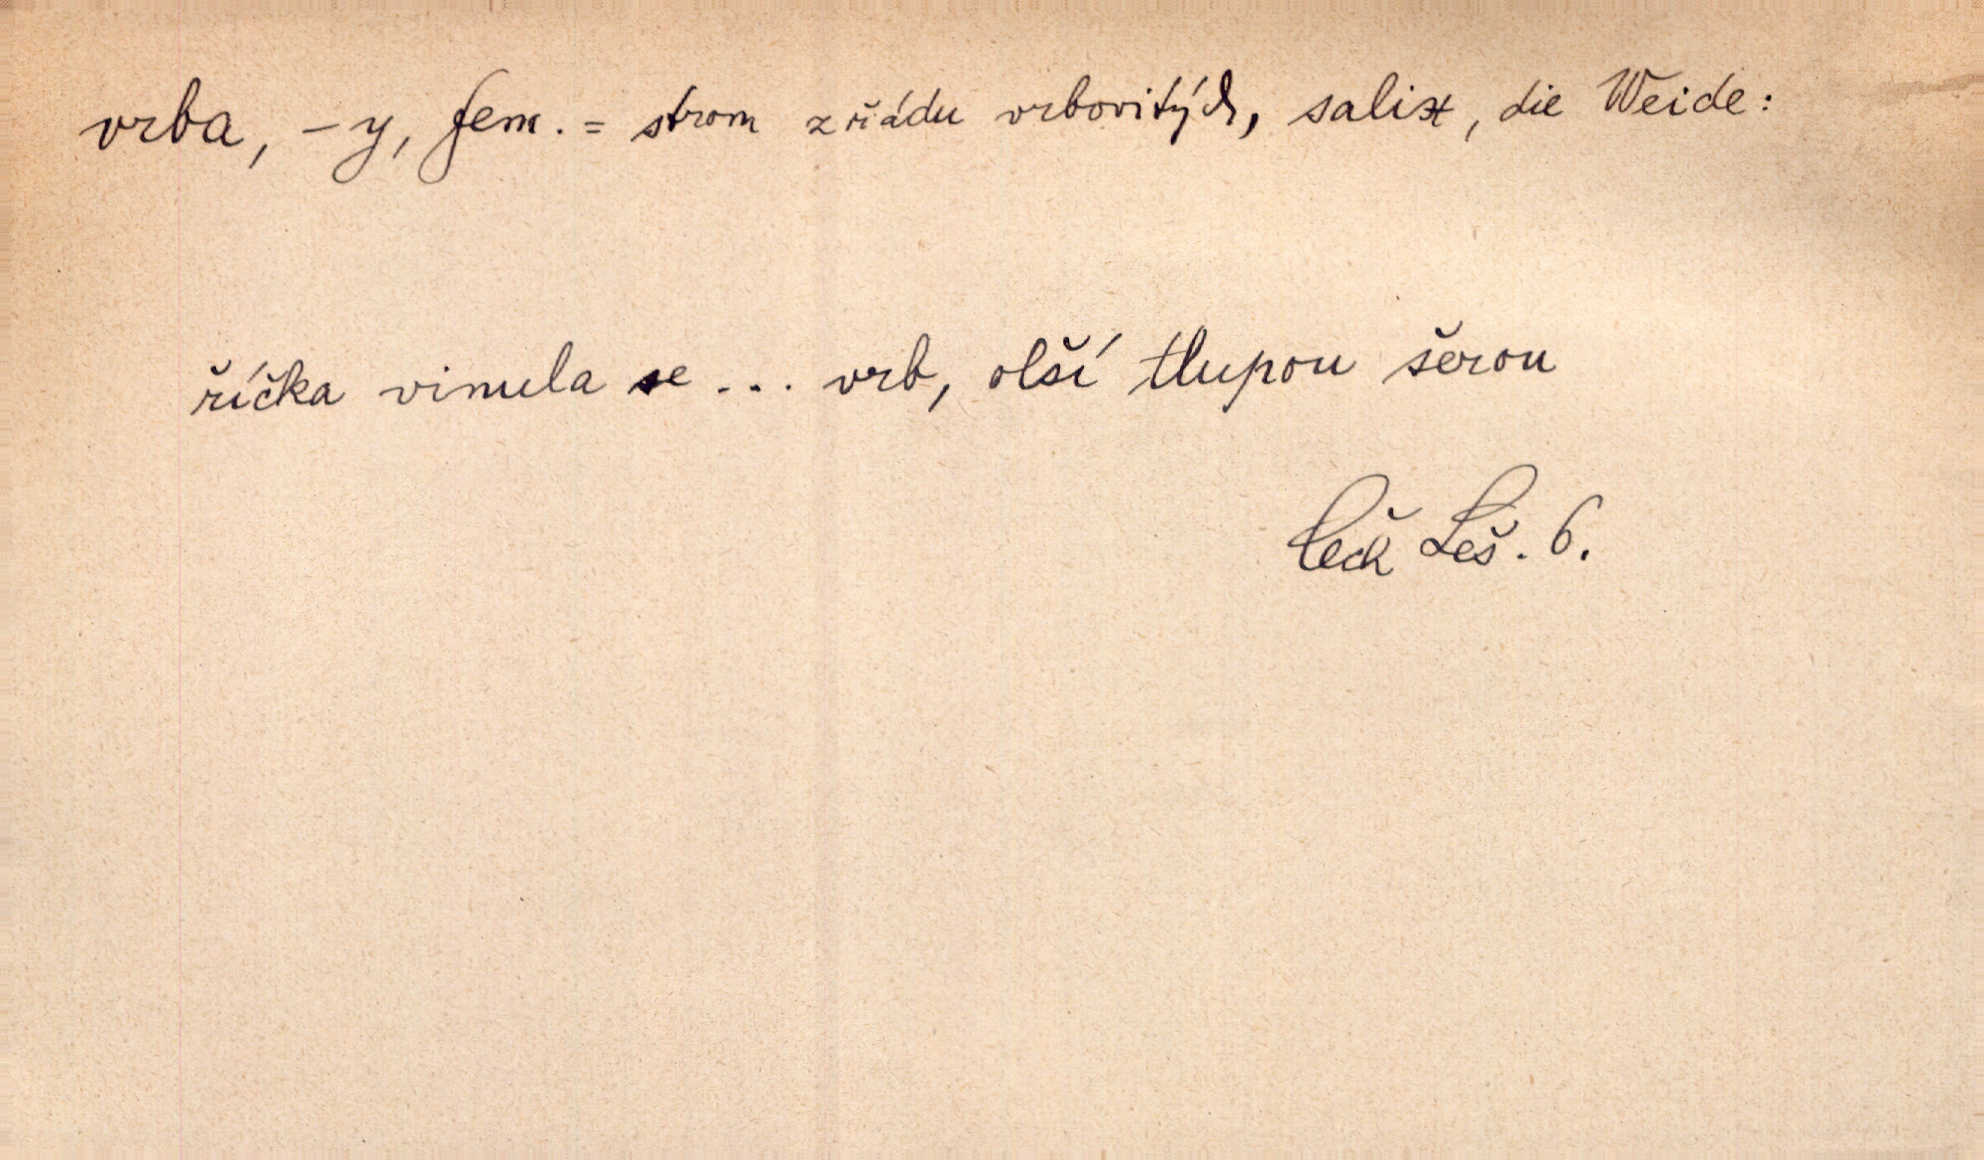 vrba, -y, fem. = strom z řádu vrbovitých, salix, die Weide:
říčka vinula se ... vrb, olší tlupou šerou
Čech Leš. 6.